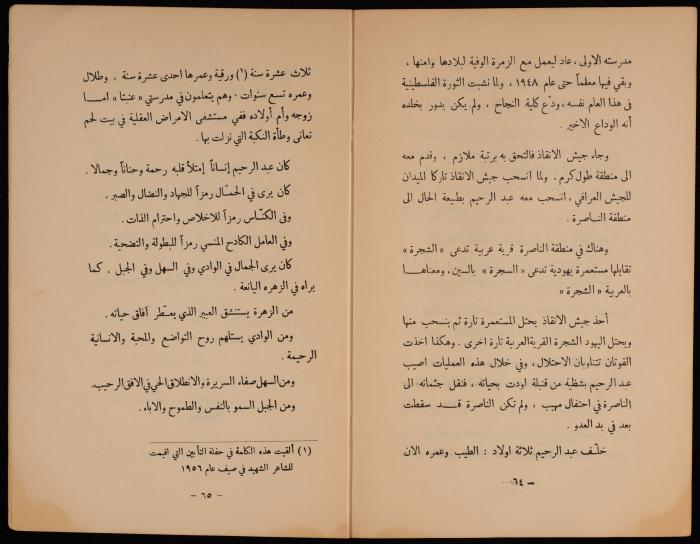 مدرسته الاولى، عاد ليعمل مع الزمرة الوفية لبلادها وامنها،
وبقي فيها معلماً حتى عام ١٩٤٨، ولما نشبت الثورة الفلسطينية
فى هذا العام نفسه، ودّع كلية النجاح، ولم يكن يدور بخلده
أنه الوداع الاخير.
وجاء جيش الانقاذ فالتحق به برتبة ملازم، وقدم معه
الى منطقة طول كرم. ولما انسحب جيش الانقاذ تاركا الميدان
للجيش العراقي، انسحب معه عبد الرحيم بطبيعة الحال الى
منطقة الناصرة.
وهناك في منطقة الناصرة قرية عربية تدعى «الشجرة»
تقابلها مستعمرة يهودية تدعى «السجرة» بالسين، ومعناها
بالعربية «الشجرة»
أخذ جيش الانقاذ يحتل المستعمرة تارة ثم ينسحب منها
ويحتل اليهود الشجرة القرية العربية تارة اخرى. وهكذا اخذت
القوتان تتناوبان الاحتلال، وفي خلال هذه العمليات اصيب
عبد الرحيم بشظية من قنبلة اودت بحياته، فنقل جثمانه الى
الناصرة في احتفال مهيب، ولم تكن الناصرة قد سقطت
بعد في يد العدو.
خلّف عبد الرحيم ثلاثة اولاد: الطيب وعمره الان
– ٦٤ –
ثلاث عشرة سنة (١) ورقية وعمرها احدى عشرة سنة. وطلال
وعمره تسع سنوات. وهم يتعلمون في مدرستي «عنبتا» اما
زوجه وأم أولاده ففي مستشفى الامراض العقلية في بيت لحم
تعانى وطأة النكبة التي نزلت بها.
كان عبد الرحيم إنساناً إمتلأ قلبه رحمة وحناناً وجمالا.
كان يرى في الحمّال رمزاً للجهاد والنضال والصبر.
وفى الكنّاس رمزاً للاخلاص واحترام الذات.
وفي العامل الكادح المنسي رمزاً للبطولة والتضحية.
كان يرى الجمال في الوادي وفي السهل وفي الجبل. كما
يراه في الزهره اليانعة.
من الزهرة يستنشق العبير الذي يعطّر آفاق حياته.
ومن الوادي يستلهم روح التواضع والمحبة والانسانية
الرحيمة.
ومن السهل صفاء السريرة والانطلاق الحي في الافق الرحيب.
ومن الجبل السمو بالنفس والطموح والاباء.
(١) ألقيت هذه الكلمة في حفلة التأبين التي اقيمت
للشاعر الشهيد في صيف عام ١٩٥٦
– ٦٥ –